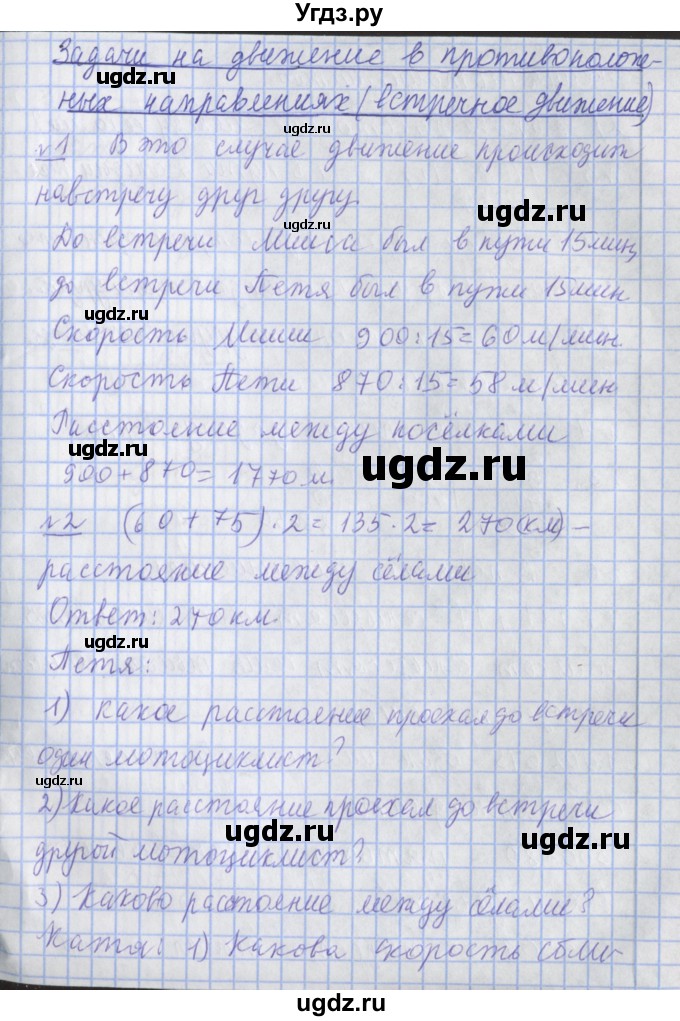 Угдз.ру
Задачи на движение в противополож-
ных направлениях (встречное движение)
№1 В это случае движение происходит
навстречу друг другу.
До встречи Миша был в пути 15 мин,
до встречи Петя был в пути 15 мин.
Скорость Миши 900:15=60 м/мин.
Скорость Пети 870:15=58 м/мин
Расстояние между посёлками
900+870=1770 м.
№2 (60+75)·2=135·2=270(км) –
расстояние между сёлами
Ответ: 270 км.
Петя:
1) какое расстояние проехал до встречи
один мотоциклист?
2) Какое расстояние проехал до встречи
другой мотоциклист?
3) Каково расстояние между сёлами?
Катя: 1) Какова скорость сбли-
ugdz.ru
ugdz.ru
ugdz.ru
ugdz.ru
ugdz.ru
ugdz.ru
ugdz.ru
ugdz.ru
ugdz.ru
ugdz.ru
ugdz.ru
ugdz.ru
ugdz.ru
ugdz.ru